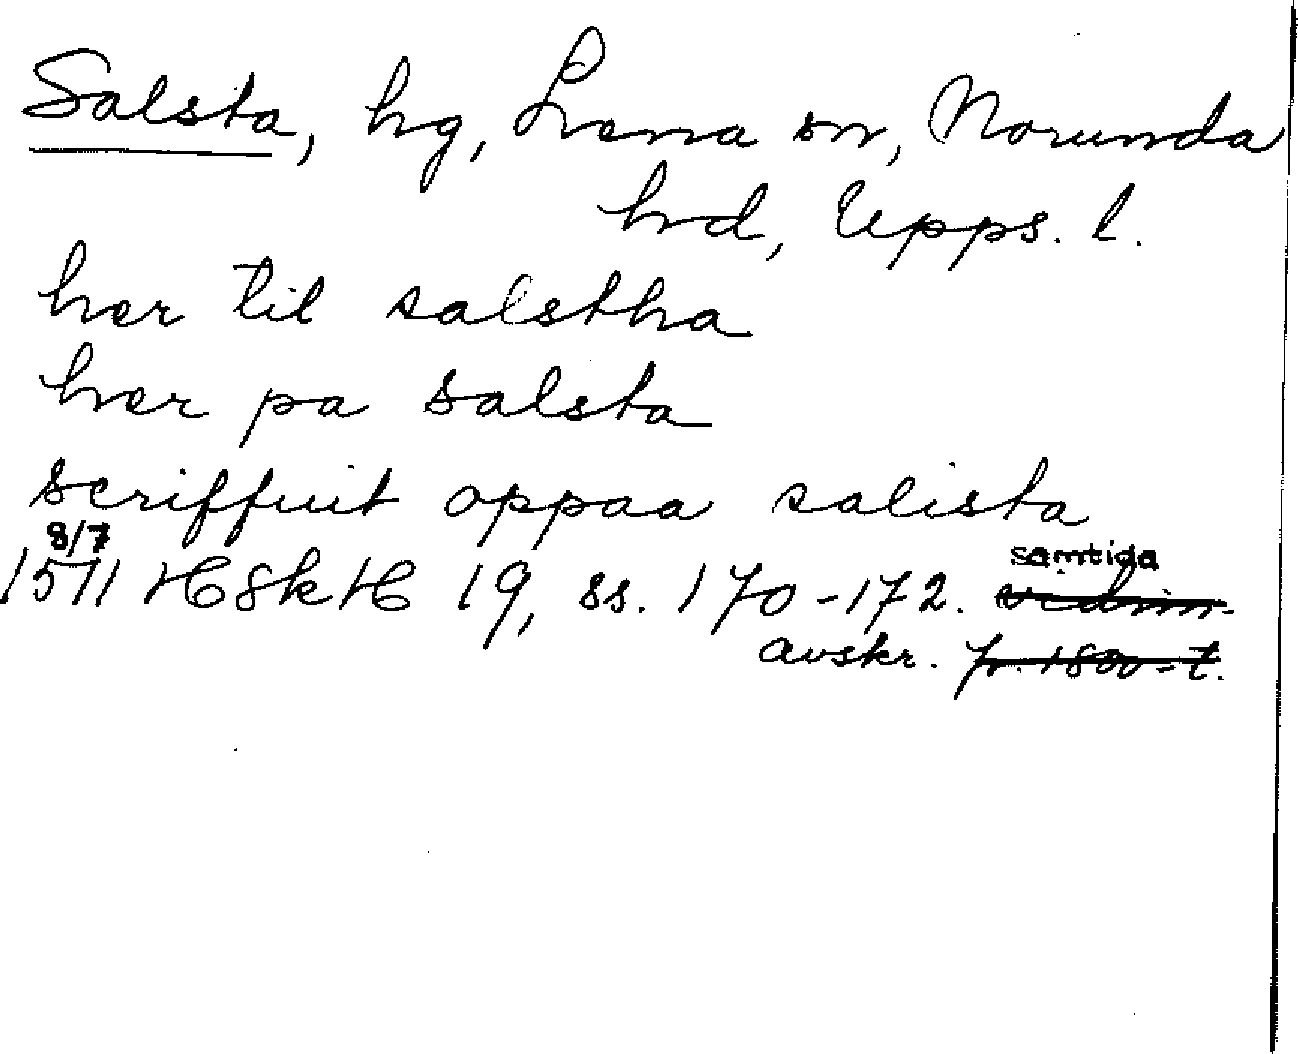 Salsta, hg, Lena sn, Norunda
hd, Upps. l.
her til salstha
her pa salsta
scriffuit oppaa salista
8/7
1571 HSkH 19, ss. 170-172. samtida vidim.
avskr. fr. 1800-t.